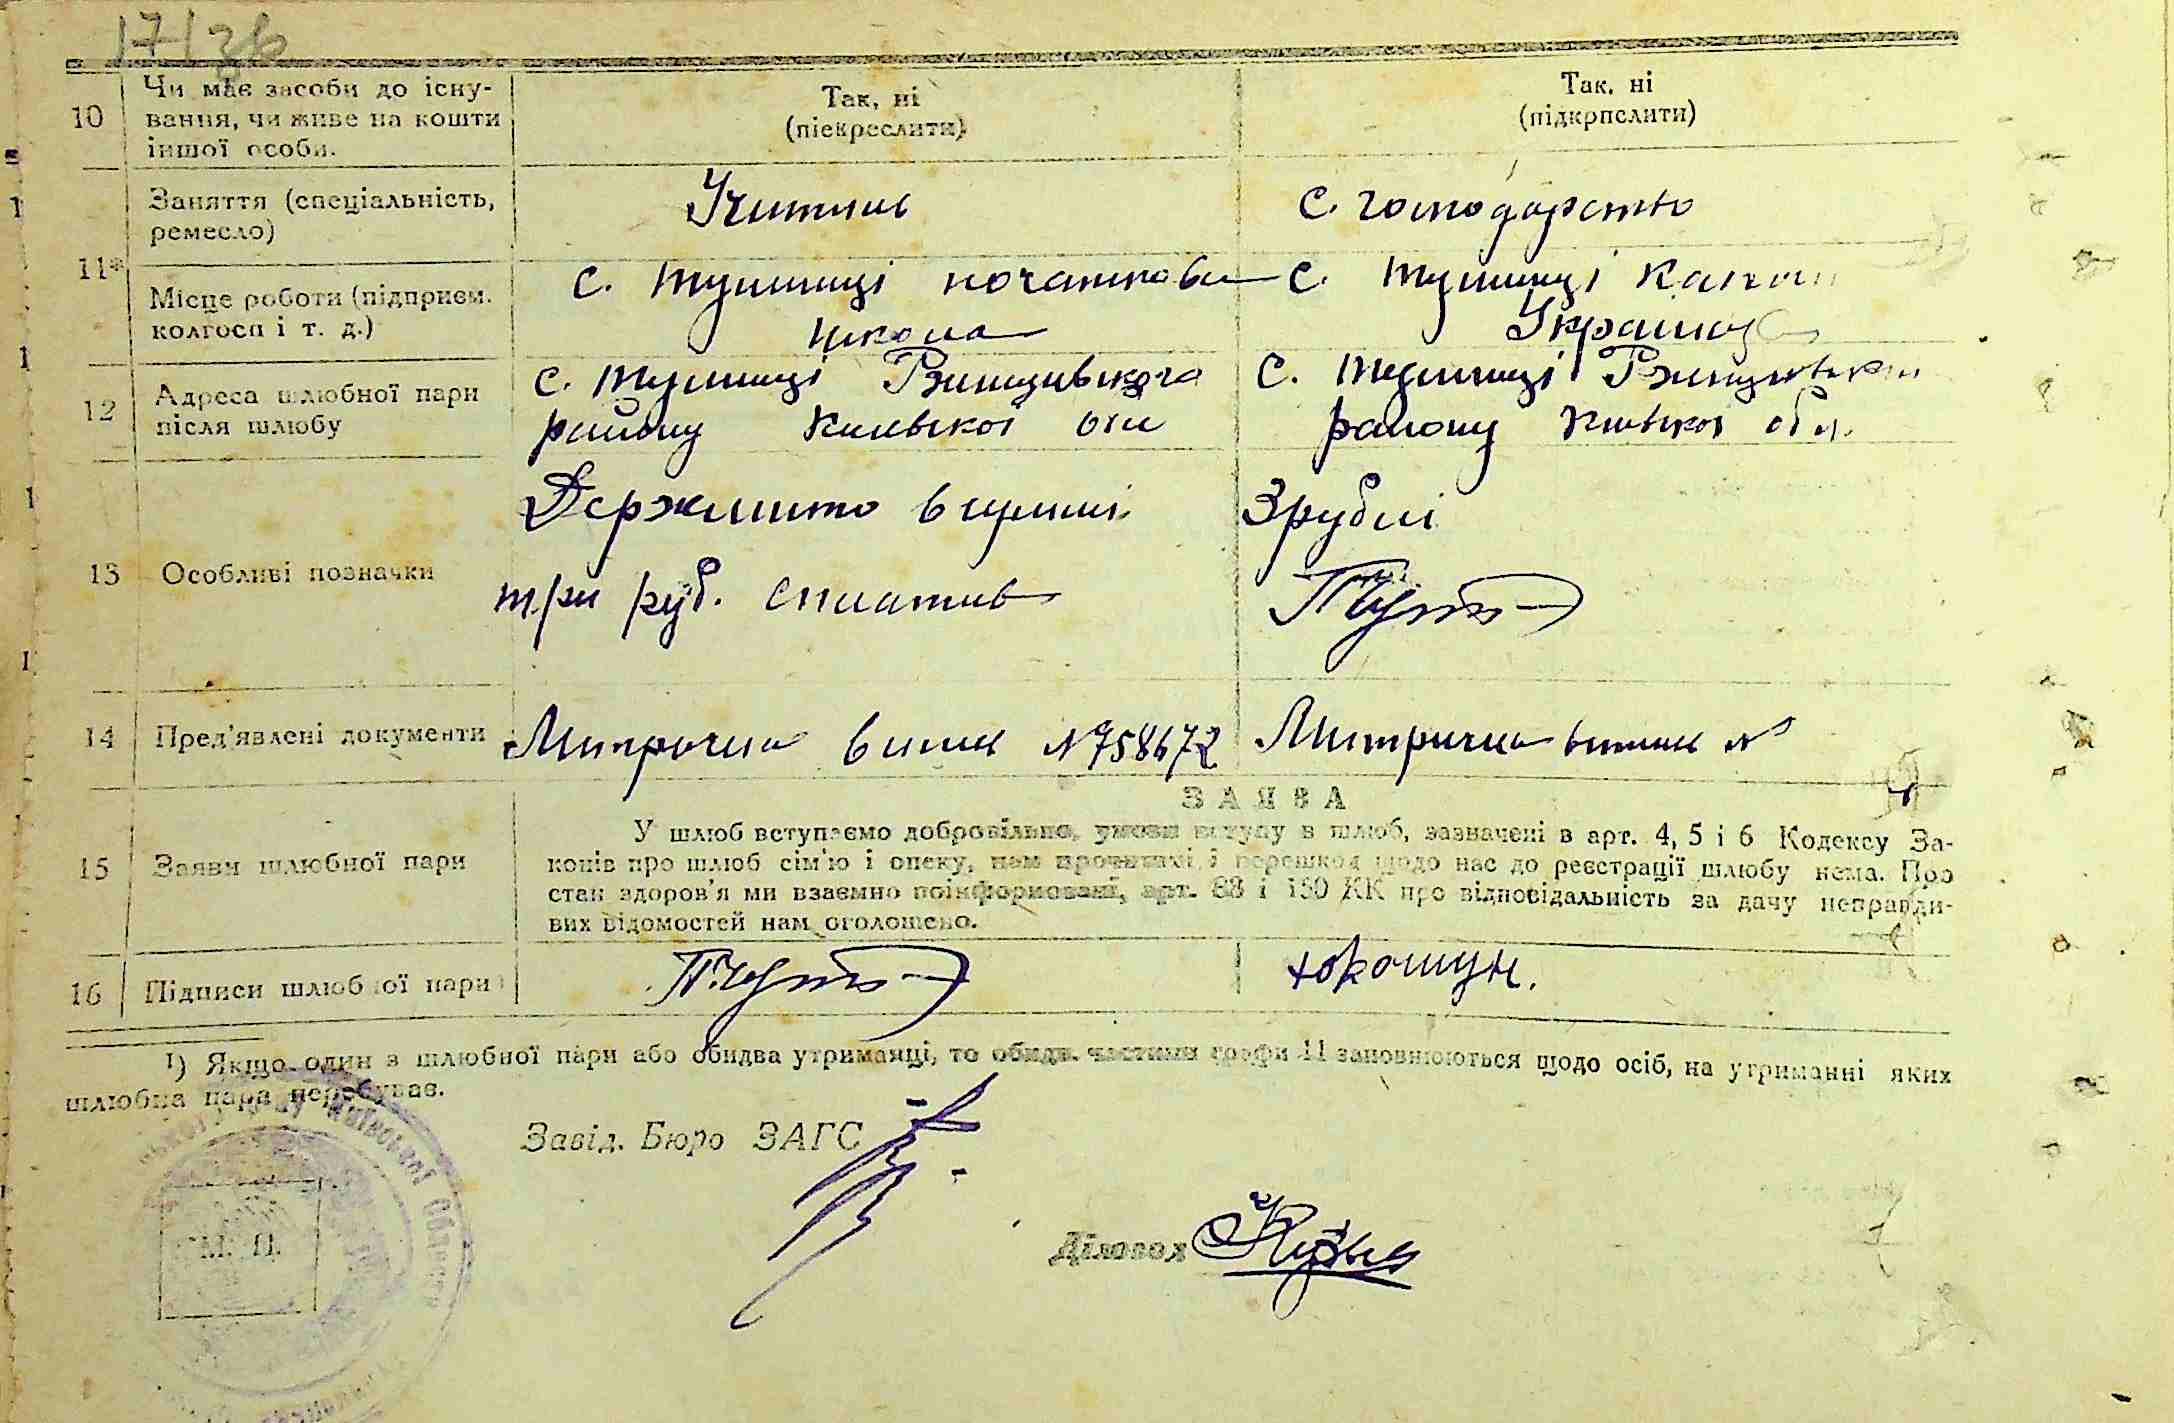 17/зв
10 Чи має засоби до існу-
вання, чи живе на кошти
іншої особи.
Так, ні
(піекреслити)
Так, ні
(підкрпслити)
11*
Заняття (спеціальність,
ремесло)
Учитель
с. господарство
Місце роботи (підприєм.
колгосп і т. д.)
с. Тулинці початкова
школа
с. Тулинці
12 Адреса шлюбної пари
після шлюбу
с. Тулинці Ржищівського
району Київської обл
с. Тулинці
району Київької обл.
13 Особливі позначки
Держмито в сумі
3 рублі
три руб. сплатив
14 Пред'явлені документи
Метрична випись №758672
Метрична випись №
15 Заяви шлюбної пари
ЗАЯВА
У шлюб вступаємо добровільно, умови вступу в шлюб, зазначені в арт. 4, 5 і 6 Кодексу За-
конів про шлюб сім'ю і опеку, нам прочитані, і перешкод щодо нас до реєстрації шлюбу нема. Про
стан здоров'я ми взаємно поінформовані, арт. 88 і 150 КК про відповідальність за дачу неправди-
вих відомостей нам оголошено.
16 Підписи шлюбної пари
1) Якщо один з шлюбної пари або обидва утриманці, то обидв. частини графи 11 заповнюються щодо осіб, на утриманні яких
шлюбна пара перебуває.
Завід. Бюро ЗАГС
М. П.
Діловод
Київської області